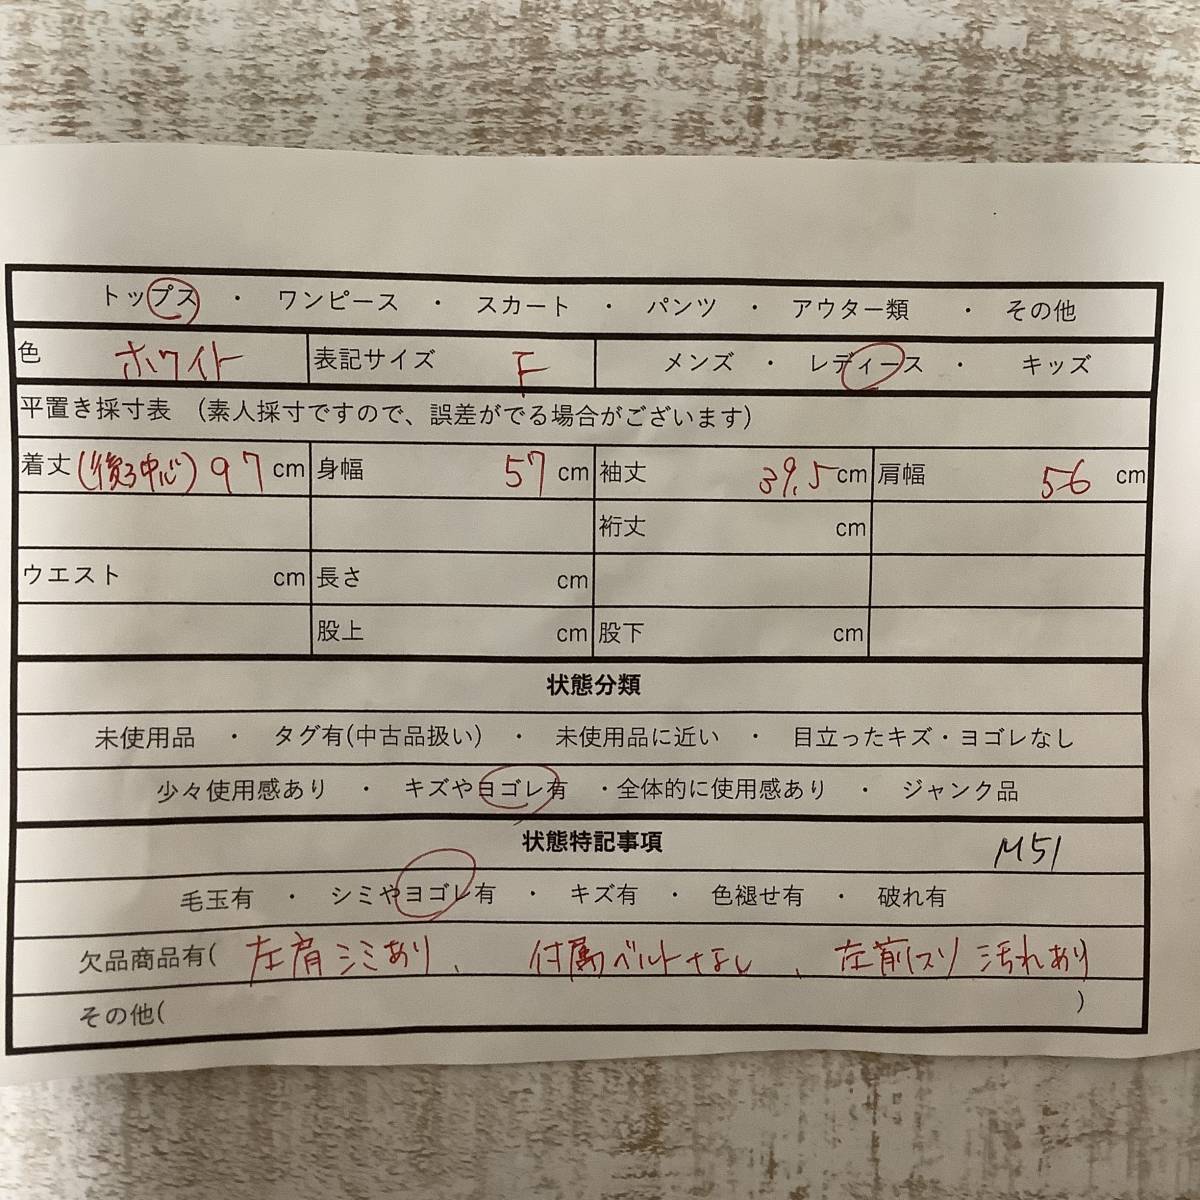 トップス ・ ワンピース ・ スカート ・ パンツ ・ アウター類 ・ その他
色 ホワイト 表記サイズ F メンズ ・ レディース ・ キッズ
平置き採寸表 (素人採寸ですので、誤差がでる場合がございます)
着丈 (後ろ中心) 97 cm 身幅 57 cm 袖丈 39.5 cm 肩幅 56 cm
裄丈 cm
ウエスト cm 長さ cm
股上 cm 股下 cm
状態分類
未使用品 ・ タグ有(中古品扱い) ・ 未使用品に近い ・ 目立ったキズ・ヨゴレなし
少々使用感あり ・ キズやヨゴレ有 ・全体的に使用感あり ・ ジャンク品
状態特記事項 M51
毛玉有 ・ シミやヨゴレ有 ・ キズ有 ・ 色褪せ有 ・ 破れ有
欠品商品有( 左肩シミあり、 付属ベルトなし 、 左前スソ 汚れあり
その他( )